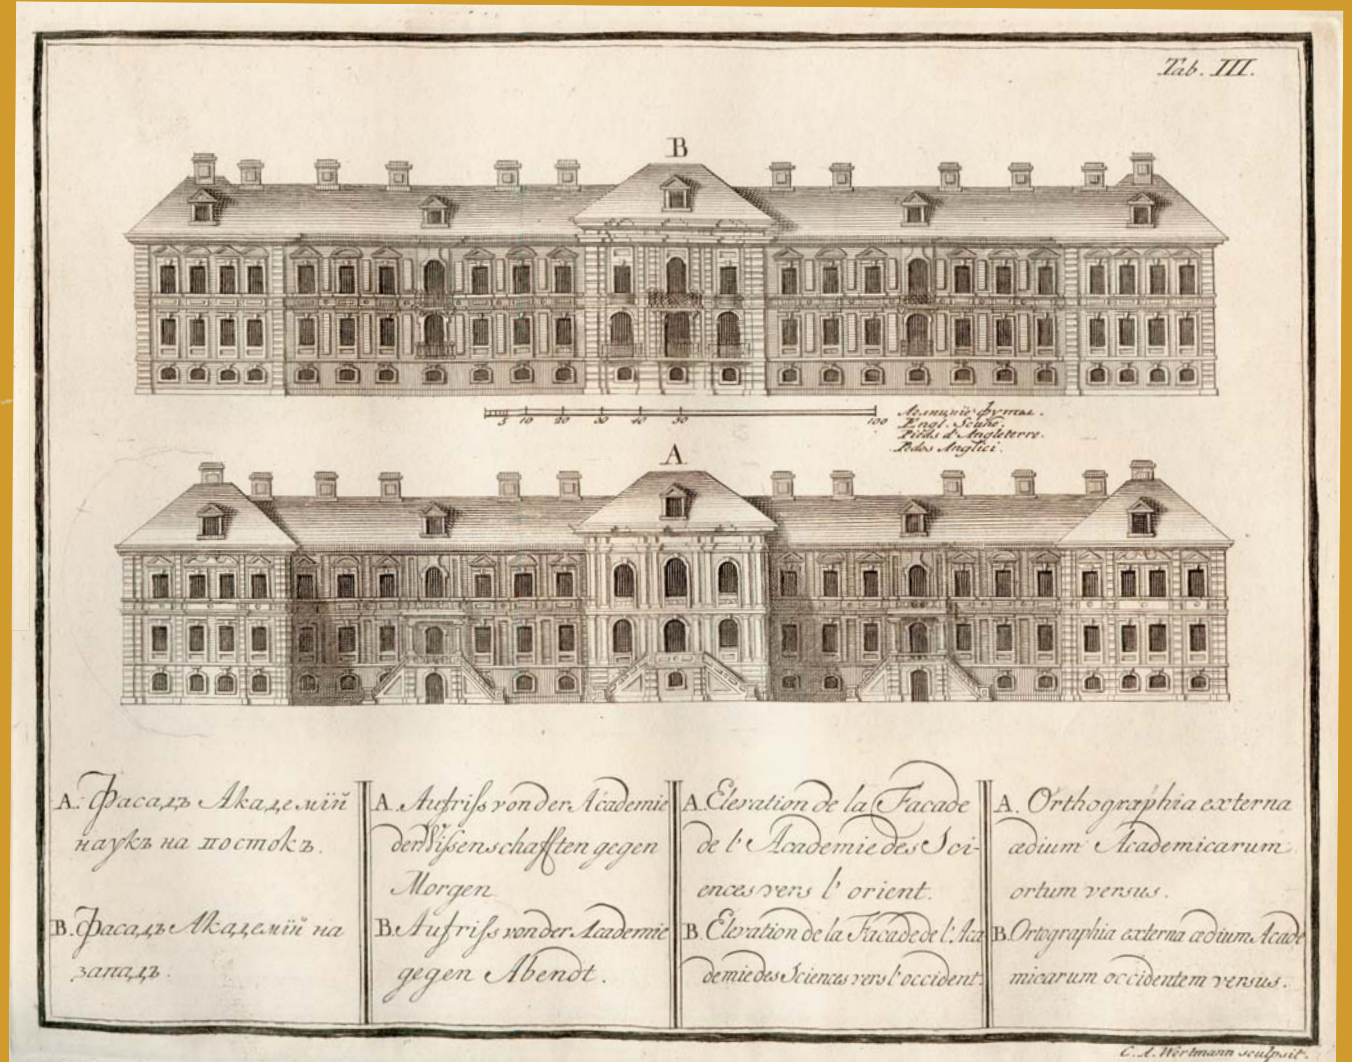 Tab. III.
B
5 10 20 30 40 50 100
футы.
Engl. Schue.
Pieds d'Angleterre.
Pedes Anglici.
A
A. Фасадъ Академїй
наукъ на востокъ.
B. Фасадъ Академїй на
западъ.
A. Aufriſs von der Academie
der Wiſsenschafften gegen
Morgen
B. Aufriſs von der Academie
gegen Abendt.
A. Elevation de la Facade
de l'Academie des Sci-
ences vers l'orient.
B. Elevation de la Facade de l'Aca
demie des Sciences vers l'occident.
A. Orthographia externa
ædium Academicarum
ortum versus.
B. Ortographia externa ædium Acade
micarum occidentem versus.
C. A. Wortmann sculpsit.